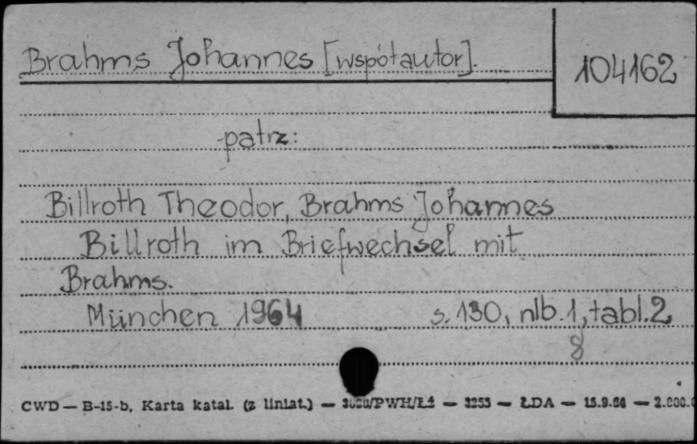 Brahms Johannes [współautor].
104162
patrz:
Billroth Theodor, Brahms Johannes
Billroth im Briefwechsel mit
Brahms.
München 1964 s. 130, nlb. 1, tabl. 2
8
CWD — B-15-b, Karta katal. (z liniat.) — — 3253 — ŁDA — 15.9.64 —